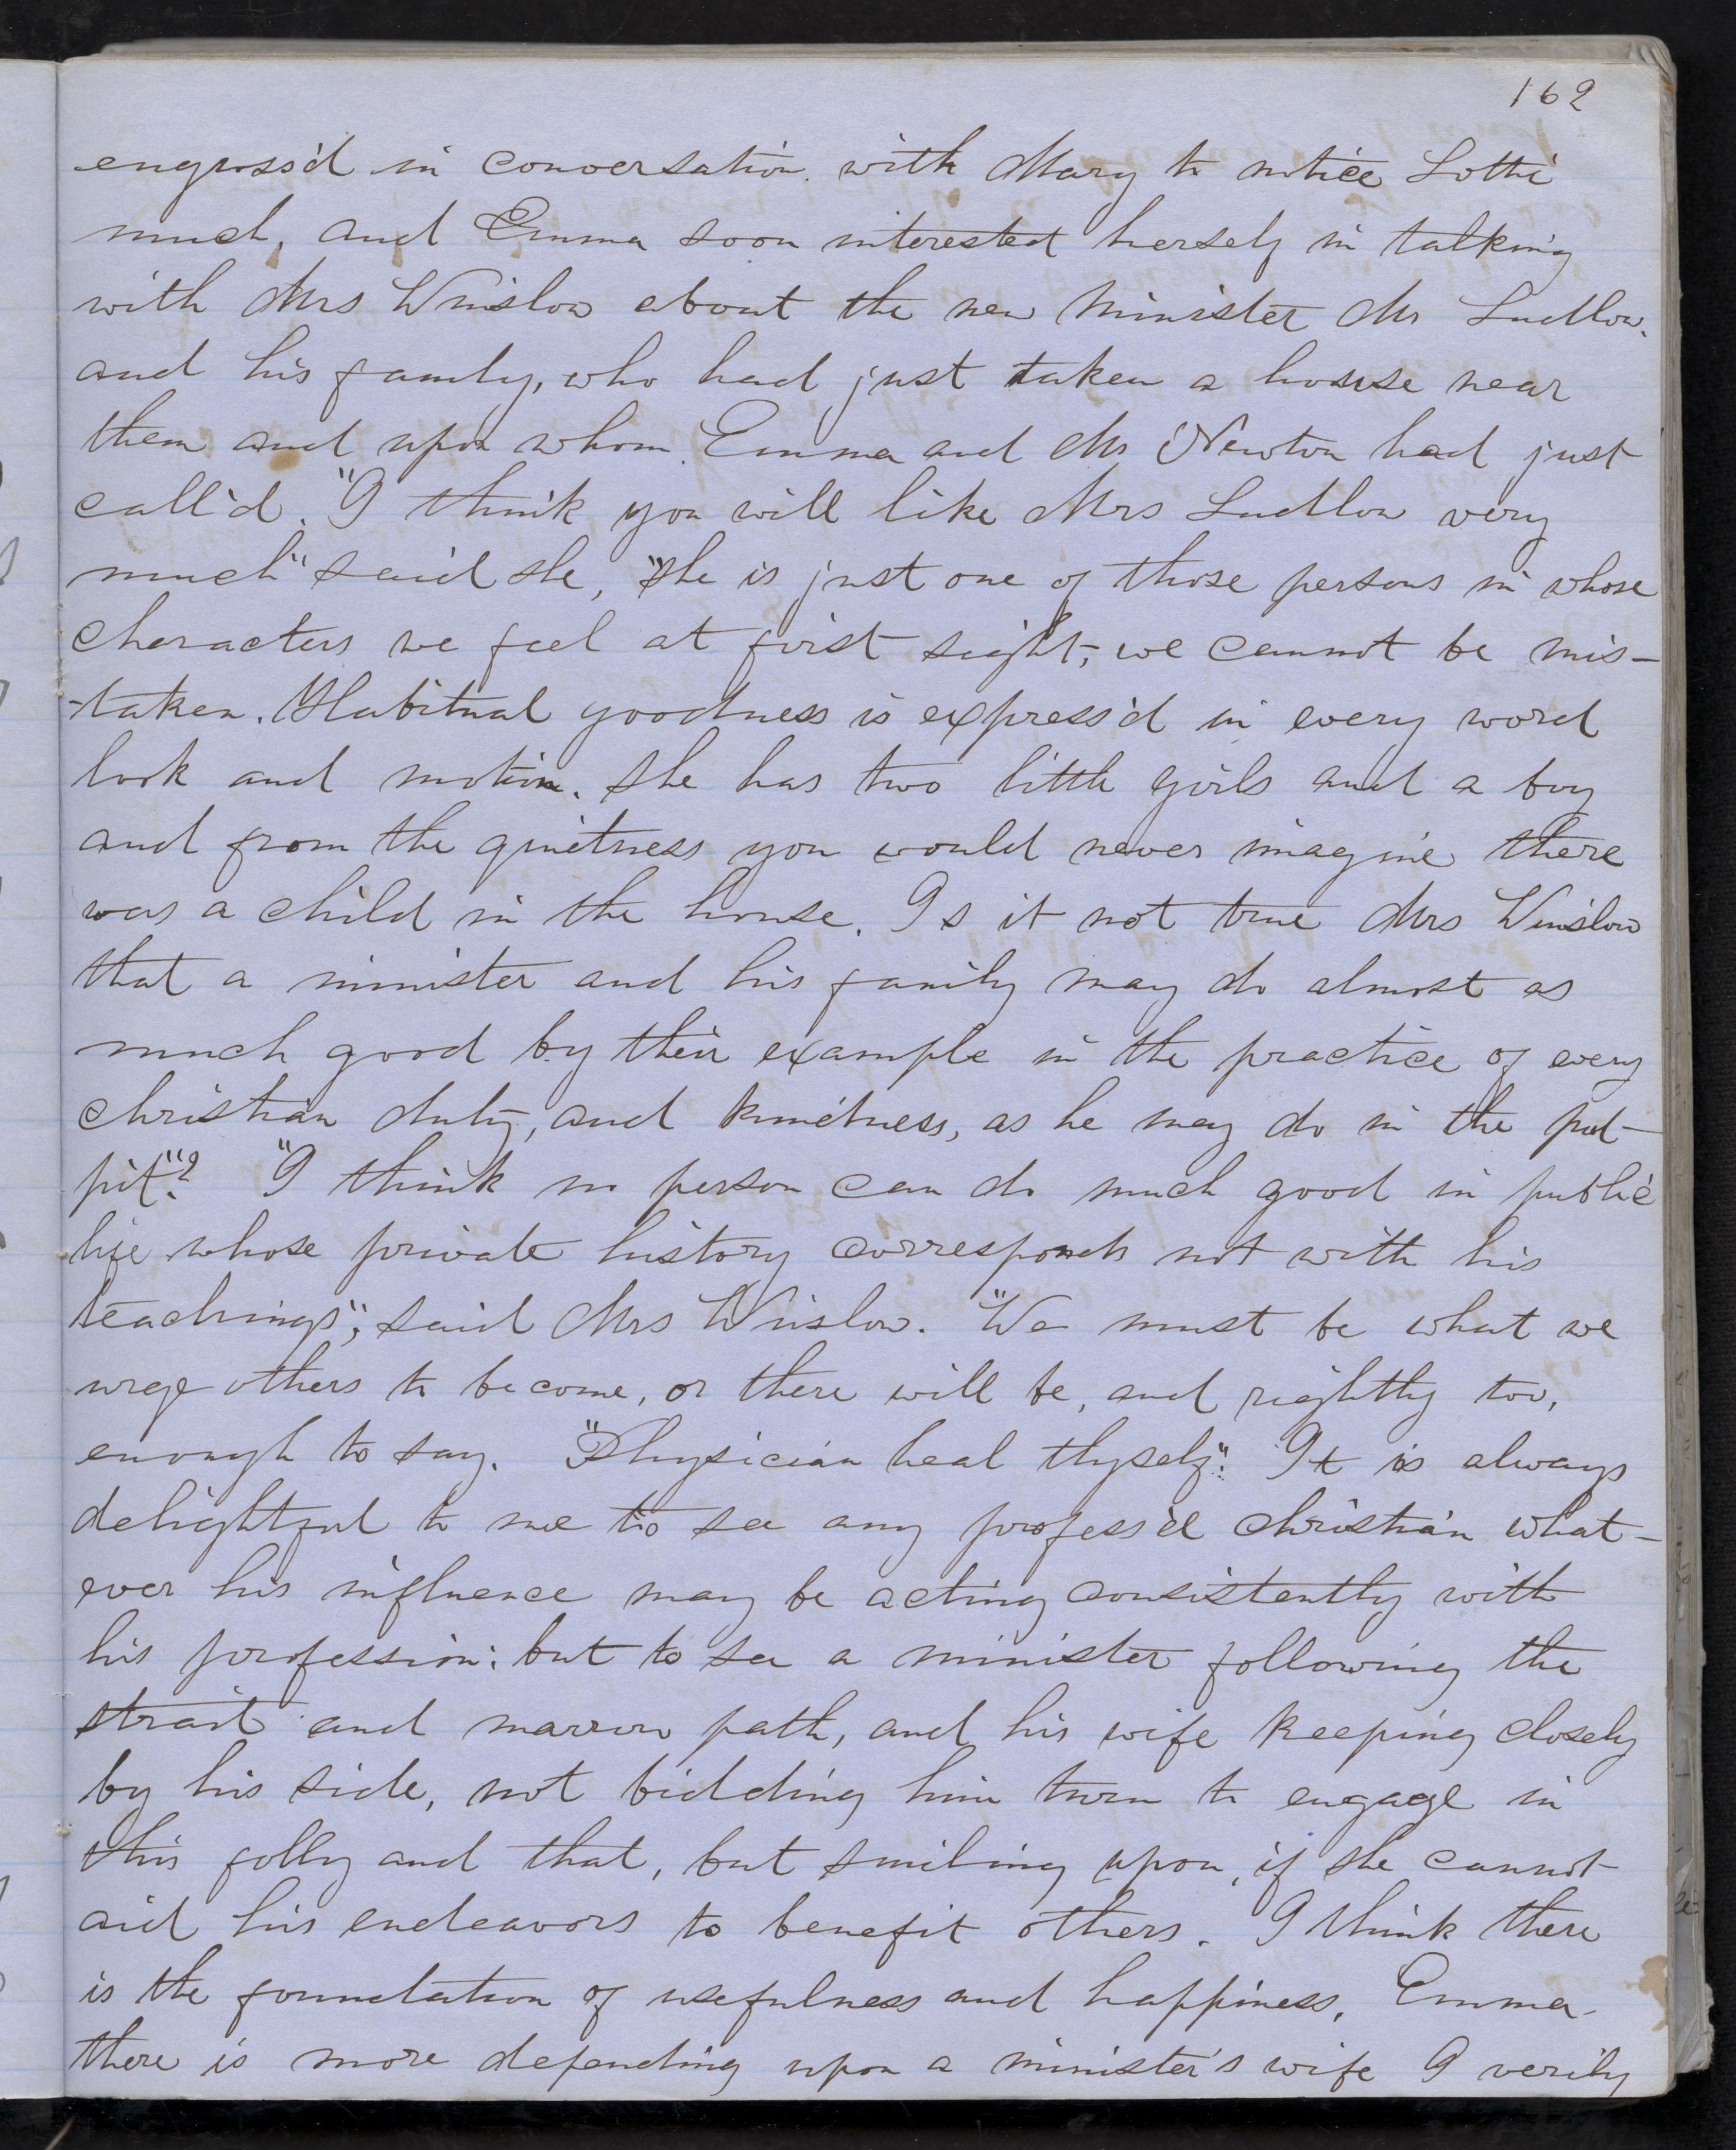 162
engross'd in conversation with Mary to notice Lottie
much, and Emma soon interested herself in talking
with Mrs Winslow about the new Minister Mr Ludlow.
and his family, who had just taken a house near
them and upon whom Emma and Mr Newton had just
call'd. "I think you will like Mrs Ludlow very
much" said she, "she is just one of those persons in whose
characters we feel at first sight, we cannot be mis-
-taken. Habitual goodness is express'd in every word
look and motion. She has two little girls and a boy
and from the quietness you would never imagine there
was a child in the house. Is it not true Mrs Winslow
that a minister and his family may do almost as
much good by their example in the practice of every
christian duty, and kindness, as he may do in the pul-
pit"? "I think no person can do much good in public
life whose private history corresponds not with his
teachings", said Mrs Winslow. "We must be what we
urge others to become, or there will be, and rightly too,
enough to say. "Physician heal thyself". It is always
delightful to me to see any profess'd christian what-
ever his influence may be acting consistently with
his profession: but to see a minister following the
strait and narrow path, and his wife keeping closely
by his side, not bidding him turn to engage in
this folly and that, but smiling upon, if she cannot
aid his endeavors to benefit others. I think there
is the foundation of usefulness and happiness. Emma
there is more depending upon a minister's wife I verily